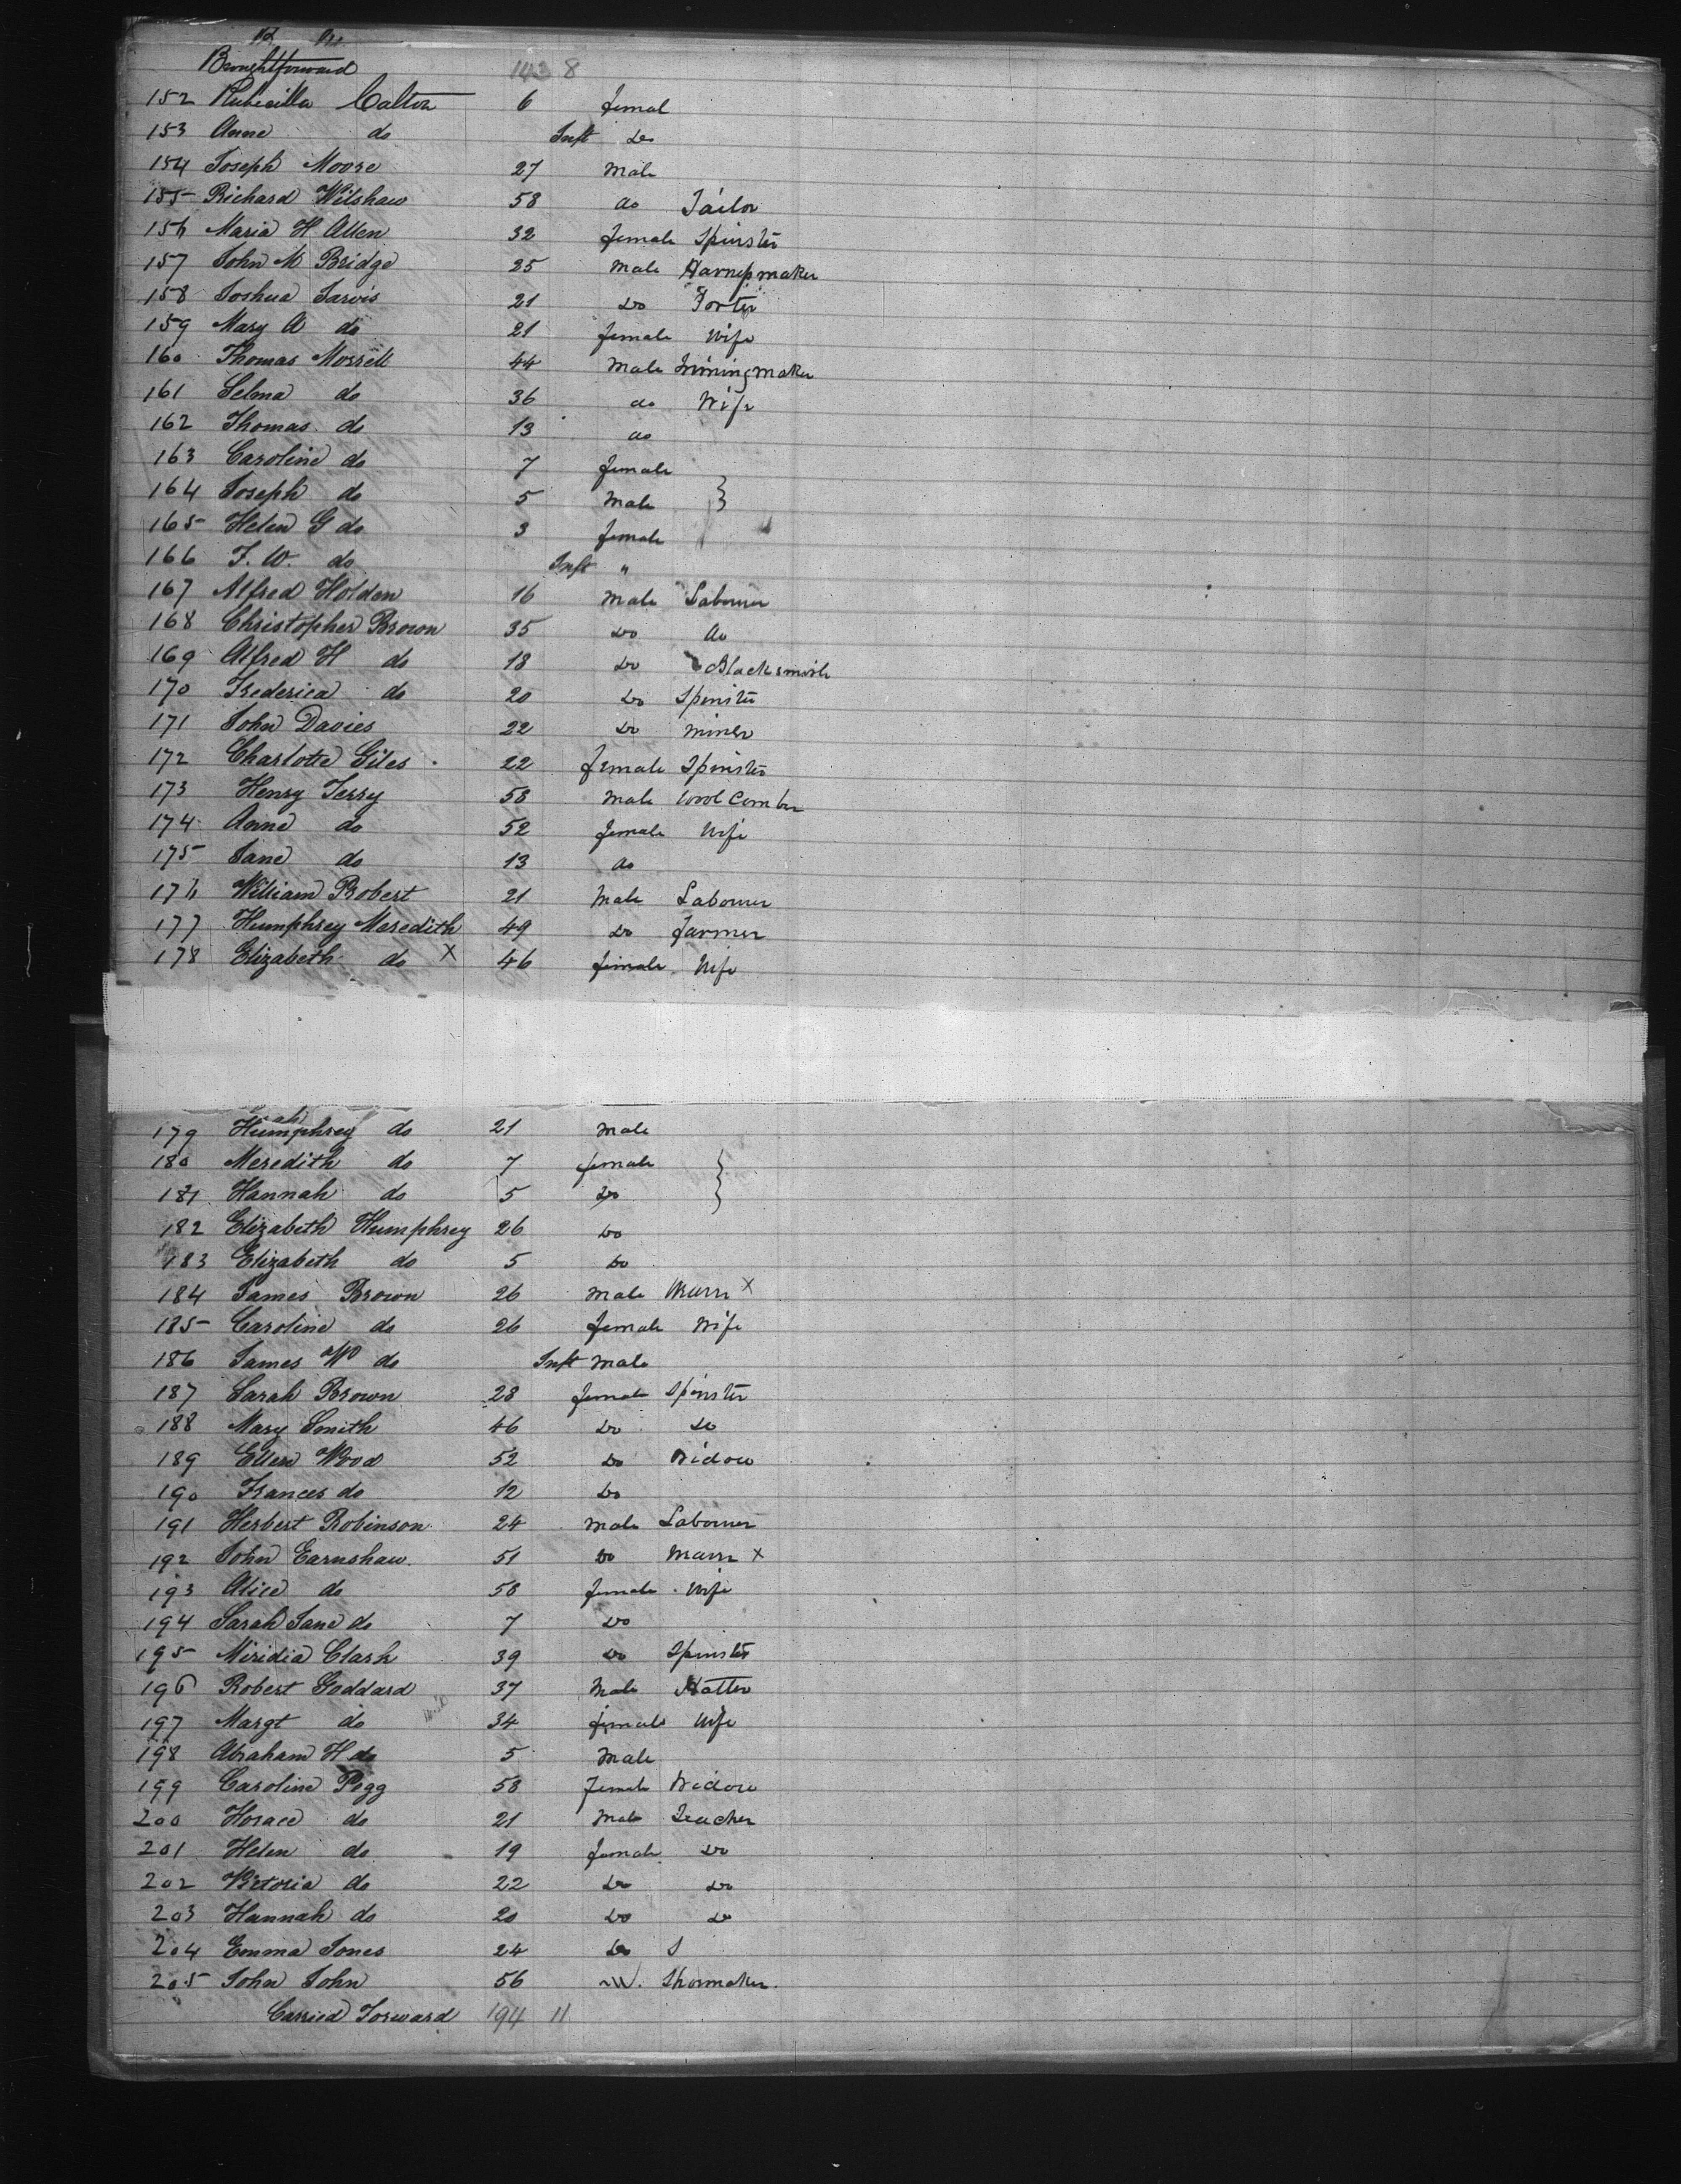 Brought forward 143 8
152 Rubicilla Calton 6 femal
153 Anne do Inft Do
154 Joseph Moore 27 Male
155 Richard Wilshaw 58 do Tailor
156 Maria H Allen 32 female Spinster
157 John M Bridge 25 Male Harnessmaker
158 Joshua Jarvis 21 Do Porter
159 Mary A do 21 female Wife
160 Thomas Morrell 44 Male Trimingmaker
161 Selma do 36 do Wife
162 Thomas do 13 do
163 Caroline do 7 female
164 Joseph do 5 Male
165 Helen G do 3 female
166 J. W. do Inft "
167 Alfred Holden 16 Male Labourer
168 Christopher Brown 35 Do do
169 Alfred H do 18 Do Blacksmith
170 Frederica do 20 Do Spinster
171 John Davies 22 Do Miner
172 Charlotte Giles 22 female Spinster
173 Henry Terry 58 Male Wool Comber
174 Anne do 52 female Wife
175 Jane do 13 do
176 William Robert 21 Male Labourer
177 Humphrey Meredith 49 Do Farmer
178 Elizabeth do X 46 female Wife
179 Humphrey do 21 Male
180 Meredith do 7 female
181 Hannah do 5 Do
182 Elizabeth Humphrey 26 Do
183 Elizabeth do 5 Do
184 James Brown 26 Male X
185 Caroline do 26 female Wife
186 James W do Inft Male
187 Sarah Brown 28 female Spinster
188 Mary Smith 46 Do Do
189 Ellen Wood 52 Do Widow
190 Frances do 12 Do
191 Herbert Robinson 24 Male Labourer
192 John Earnshaw 51 Do X
193 Alice do 58 female Wife
194 Sarah Jane do 7 Do
195 Miridia Clark 39 Do Spinster
196 Robert Goddard 37 Male Hatter
197 Margt do 34 female Wife
198 Abraham H do 5 Male
199 Caroline Pegg 58 Female Widow
200 Horace do 21 Male Teacher
201 Helen do 19 female Do
202 Victoria do 22 Do Do
203 Hannah do 20 Do Do
204 Emma Jones 24 Do S
205 John John 56 M. Shoemaker.
Carried Forward 194 11